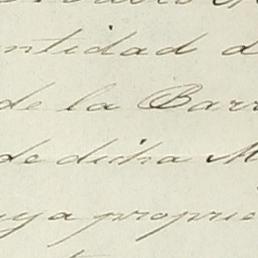 entidad d
de la Barr
de dicha M
uya proprie